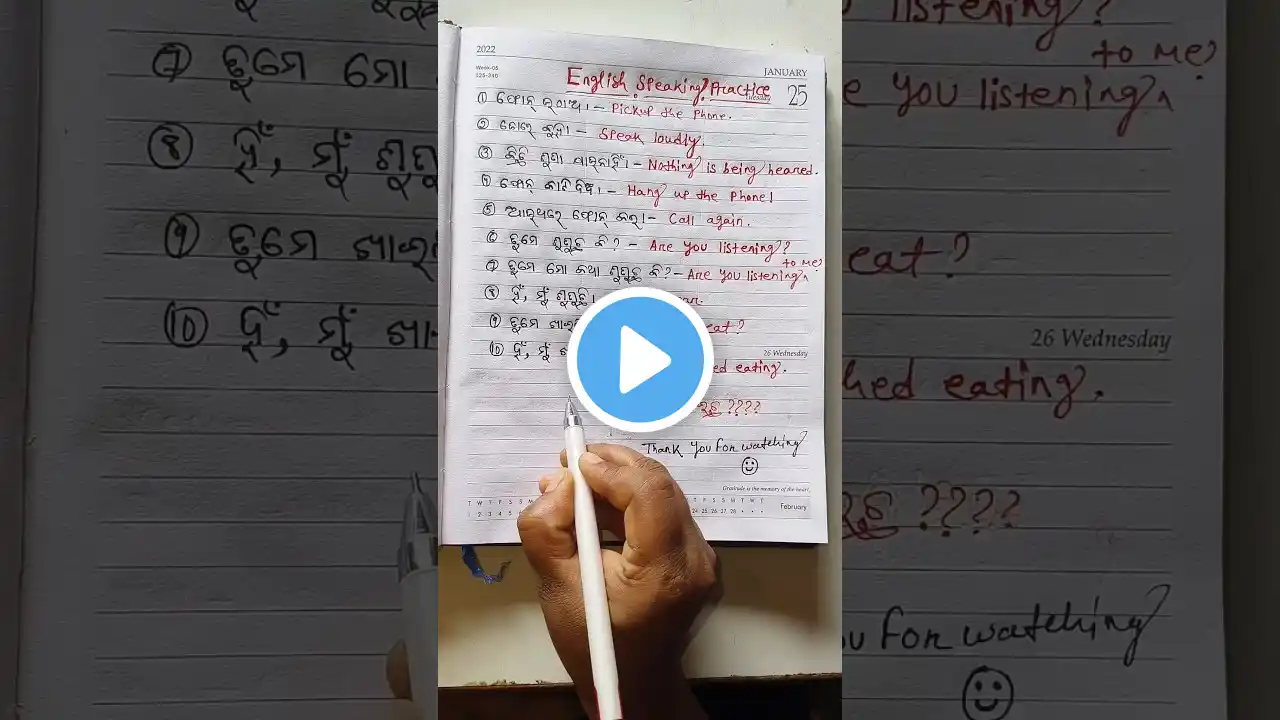 2022
Week-05
025-340
JANUARY
Tuesday 25
English Speaking Practice
① ଫୋନ୍ ଉଠାଅ। - Pickup the phone.
② ଜୋରେ କୁହ। - Speak loudly.
③ କିଛି ଶୁଭା ଯାଉନାହିଁ। - Nothing is being heared.
④ ଫୋନ୍ କାଟି ଦିଅ। - Hang up the phone!
⑤ ଆଉଥରେ ଫୋନ୍ କର। - Call again.
⑥ ତୁମେ ଶୁଣୁଛ କି? - Are you listening?
⑦ ତୁମେ ମୋ କଥା ଶୁଣୁଛ କି? - Are you listening to me?
⑧ ହଁ, ମୁଁ ଶୁଣୁଛି।
⑨ ତୁମେ eat?
26 Wednesday
⑩ ହଁ, ମୁଁ eating.
????
Thank you for watching
Gratitude is the memory of the heart
February